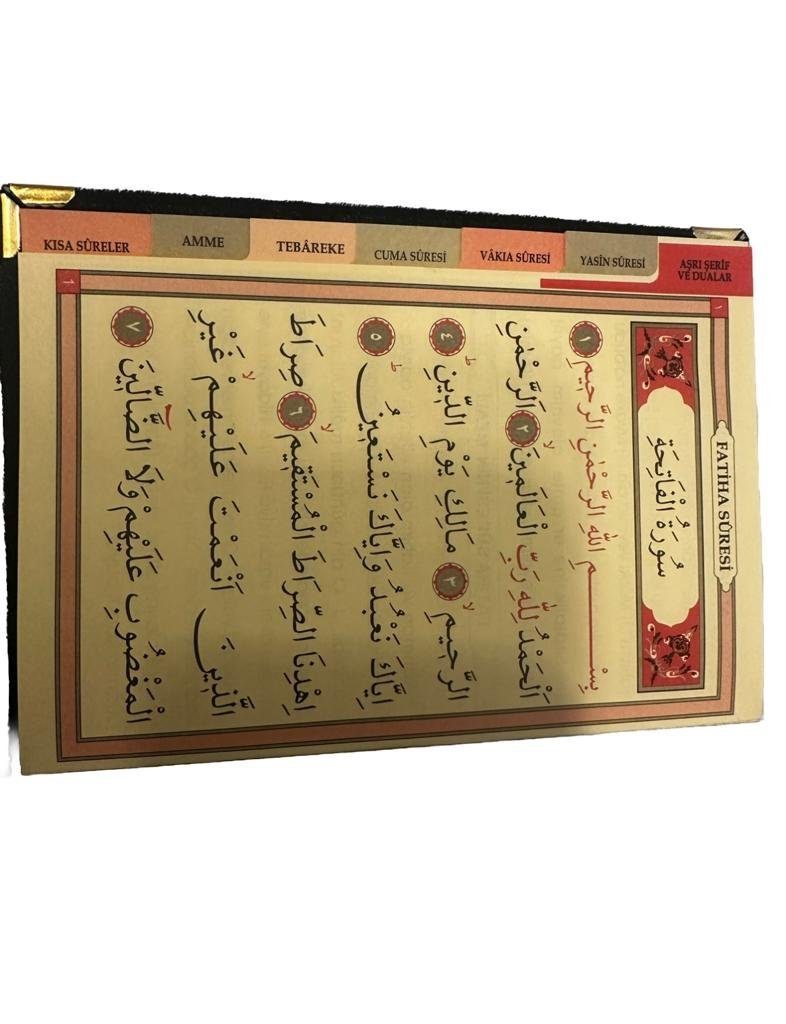 KISA SÛRELER
AMME
TEBÂREKE
CUMA SÛRESİ
VÂKIA SÛRESİ
YASİN SÛRESİ
AŞRI ŞERİF
VE DUALAR
١
FATİHA SÛRESİ
سُورَةُ الْفَاتِحَةِ
بِسْــــــــمِ اللّٰهِ الرَّحْمٰنِ الرَّحِيمِ ﴿١﴾
اَلْحَمْدُ لِلّٰهِ رَبِّ الْعَالَمِينَۙ ﴿٢﴾ اَلرَّحْمٰنِ
الرَّحِيمِۙ ﴿٣﴾ مَالِكِ يَوْمِ الدِّينِۜ ﴿٤﴾
اِيَّاكَ نَعْبُدُ وَاِيَّاكَ نَسْتَعِينُۜ ﴿٥﴾
اِهْدِنَا الصِّرَاطَ الْمُسْتَقِيمَۙ ﴿٦﴾ صِرَاطَ
الَّذِينَ اَنْعَمْتَ عَلَيْهِمْۙ غَيْرِ
الْمَغْضُوبِ عَلَيْهِمْ وَلَا الضَّٓالِّينَ ﴿٧﴾